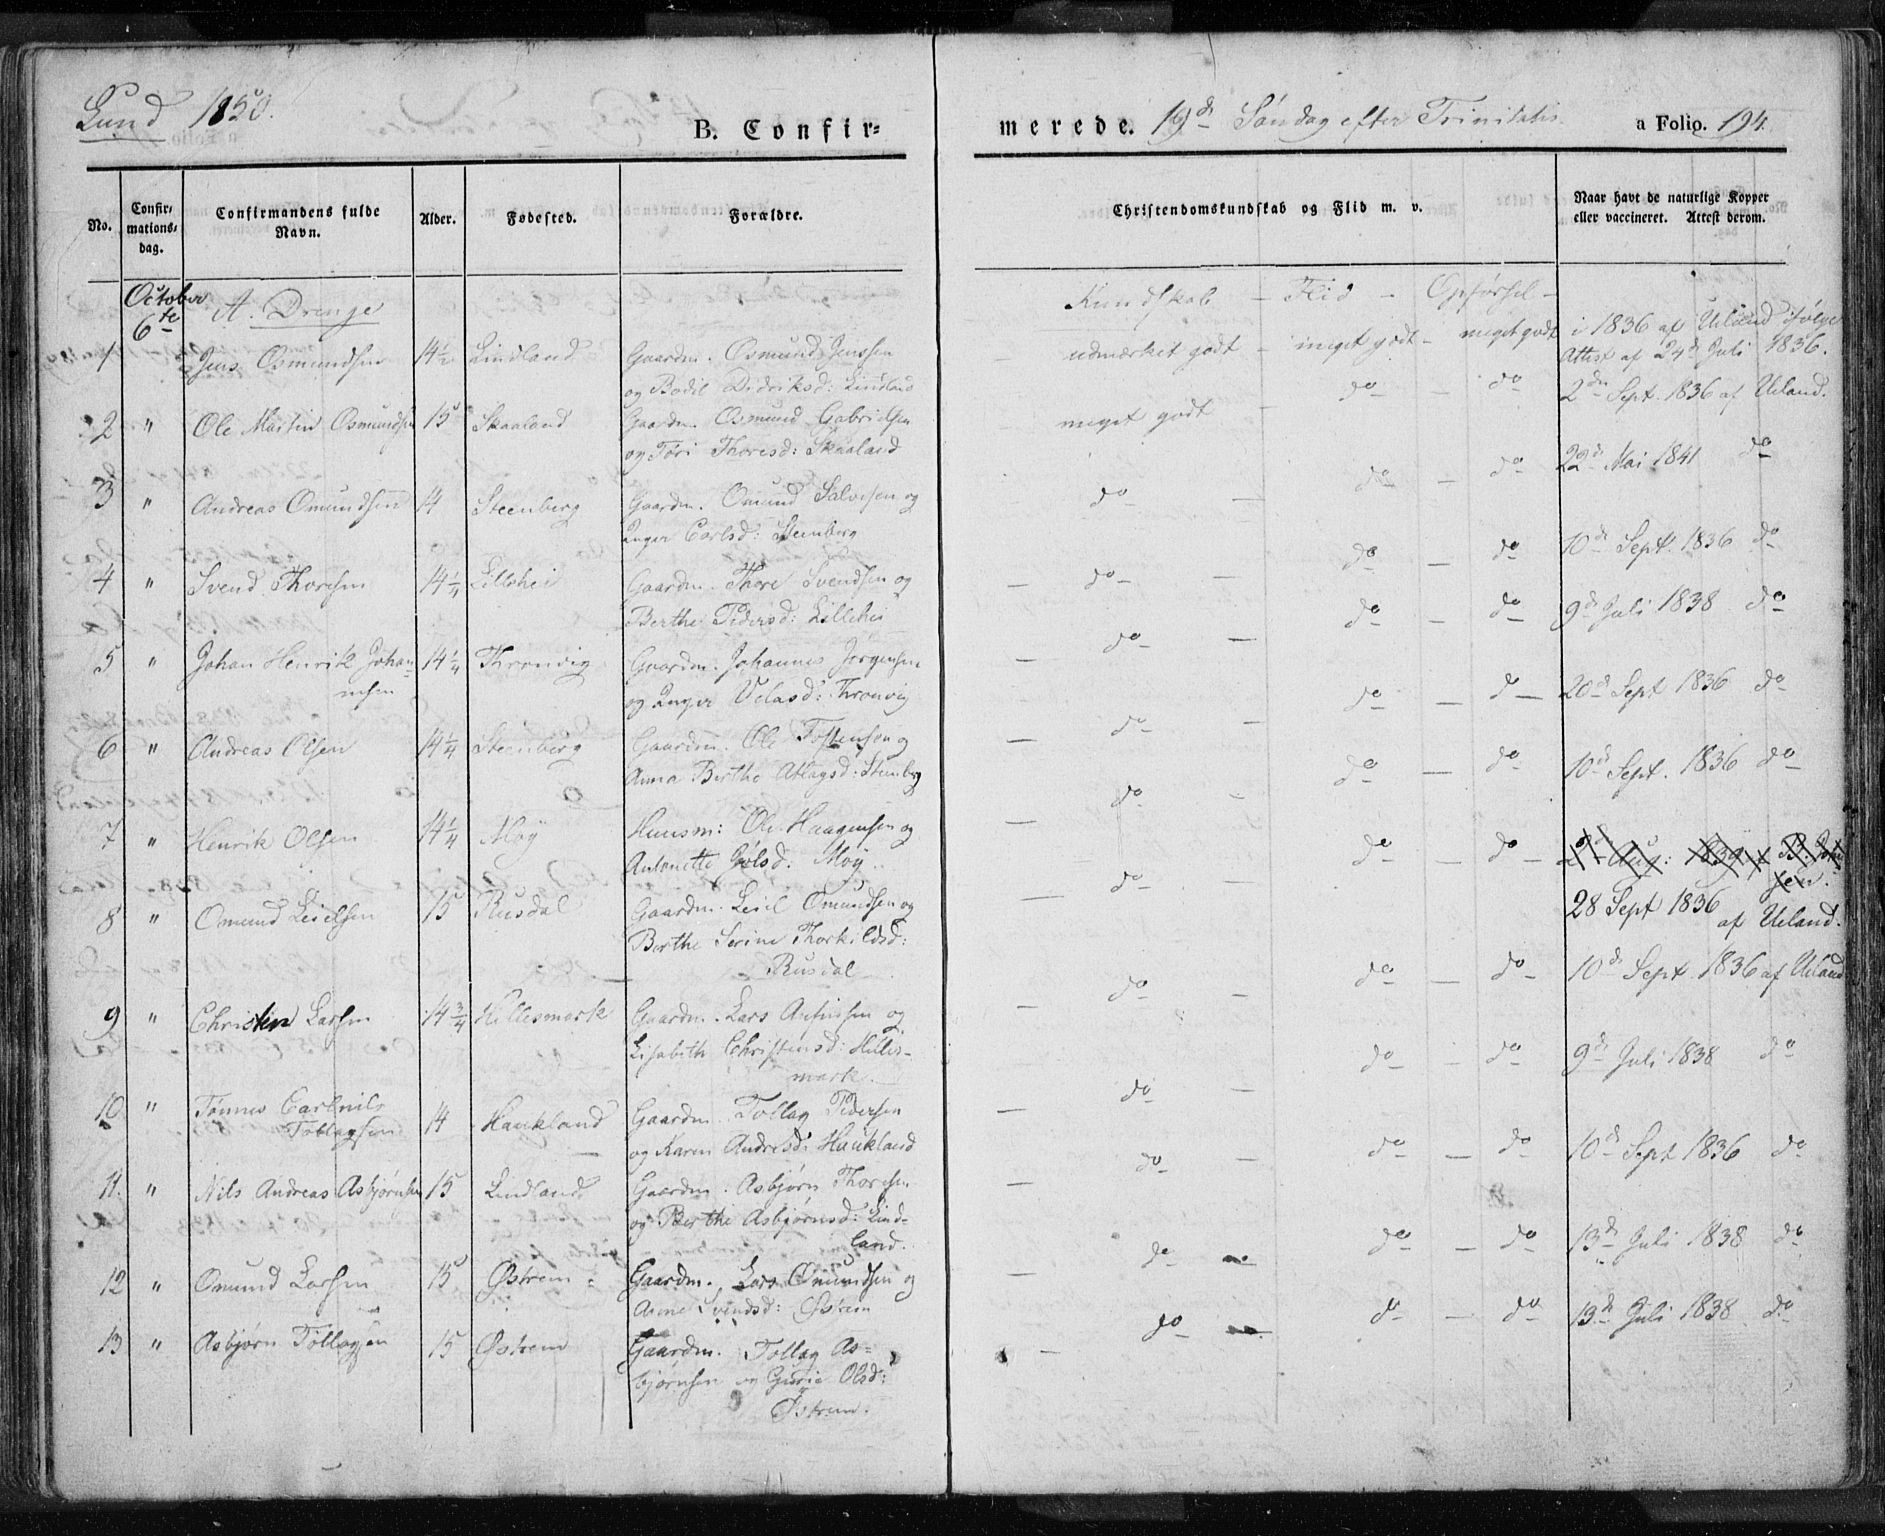 Lund 1850.
B. Confir-
merede. 19de Søndag efter Trinitatis. a Folio. 194.
No. Confir-mations-dag. Confirmandens fulde Navn. Alder. Fødested. Forældre.
Christendomskundskab og Flid m. v. Naar havt de naturlige Kopper eller vaccineret. Attest derom.
October 6te A. Drenge
Kundskab – Flid – Opførsel –
1 Jens Osmundsen 14½ Lindland Gaardm. Osmund Jenssen
og Bodil Didriksd: Lindland
udmærket godt – meget godt – meget godt
i 1836 af Ueland ifølge
Attest af 24de Juli 1836.
2 " Ole Martin Osmundsen 15 Skaaland Gaardm. Osmund Gabrielsen
og Tori Thoresd: Skaaland
meget godt – do – do 2den Sept. 1836 af Ueland.
3 " Andreas Omundsen 14 Steenberg Gaardm. Omund Salvesen og
Inger Carlsd: Steenberg
do – do – do 22de Mai 1841 do
4 " Svend Thoresen 14¼ Lillehei Gaardm. Thore Svendsen og
Berthe Pedersd: Lillehei
– do – do – do 10de Sept. 1836 do
5 " Johan Henrik Johan-
nesen 14¼ Thronvig Gaardm. Johannes Jørgensen
og Inger Velasd: Thronvig
– do – do – do 9de Juli 1838 do
6 " Andreas Olsen 14¼ Steenberg Gaardm. Ole Tostensen og
Anna Berthe Atlagsd: Steenberg
– do – do – do – 20de Sept 1836 do
7 " Henrik Olsen 14¼ Moÿ Huusm: Ole Haagensen og
Antonette Joelsd. Moÿ.
– do – do – do 10de Sept. 1836 do
8 " Omund Leielsen 15 Rusdal Gaardm. Leiel Omundsen og
Berthe Serine Thorkildsd:
Rusdal
– do – do – do – 28 Sept 1836
af Ueland.
9 " Christen Larsen 14¾ Hillesmark Gaardm. Lars Anfinsen og
Lisabeth Christensd: Hilles-
mark.
– do – do – do 10de Sept. 1836 af Ueland
10 " Tønnes Carlnils
Tollagsen 14 Haukland Gaardm. Tollag Pedersen
og Karen Andresd: Haukland
– do – do – do 9de Juli 1838 do
11. " Nils Andreas Asbjørnsen 15 Lindland Gaardm. Asbjørn Thoresen
og Berthe Asbjørnsd: Lind-
land.
– do – do – do 10de Sept 1836 do
12 " Omund Larsen 15 Østrem Gaardm. Lars Omundsen og
Anne Svendsd: Østrem
– do – do – do 13de Juli 1838 do
13 " Asbjørn Tollagsen 15 Østrem Gaardm. Tollag As-
bjørnsen og Gurie Olsd:
Østrem.
– do – do – do 13de Juli 1838 do